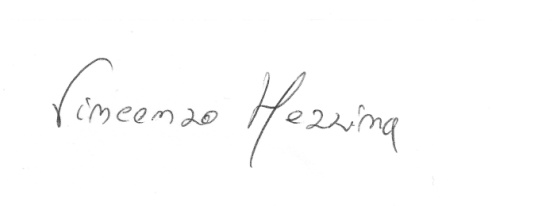 Vincenzo Mezzina